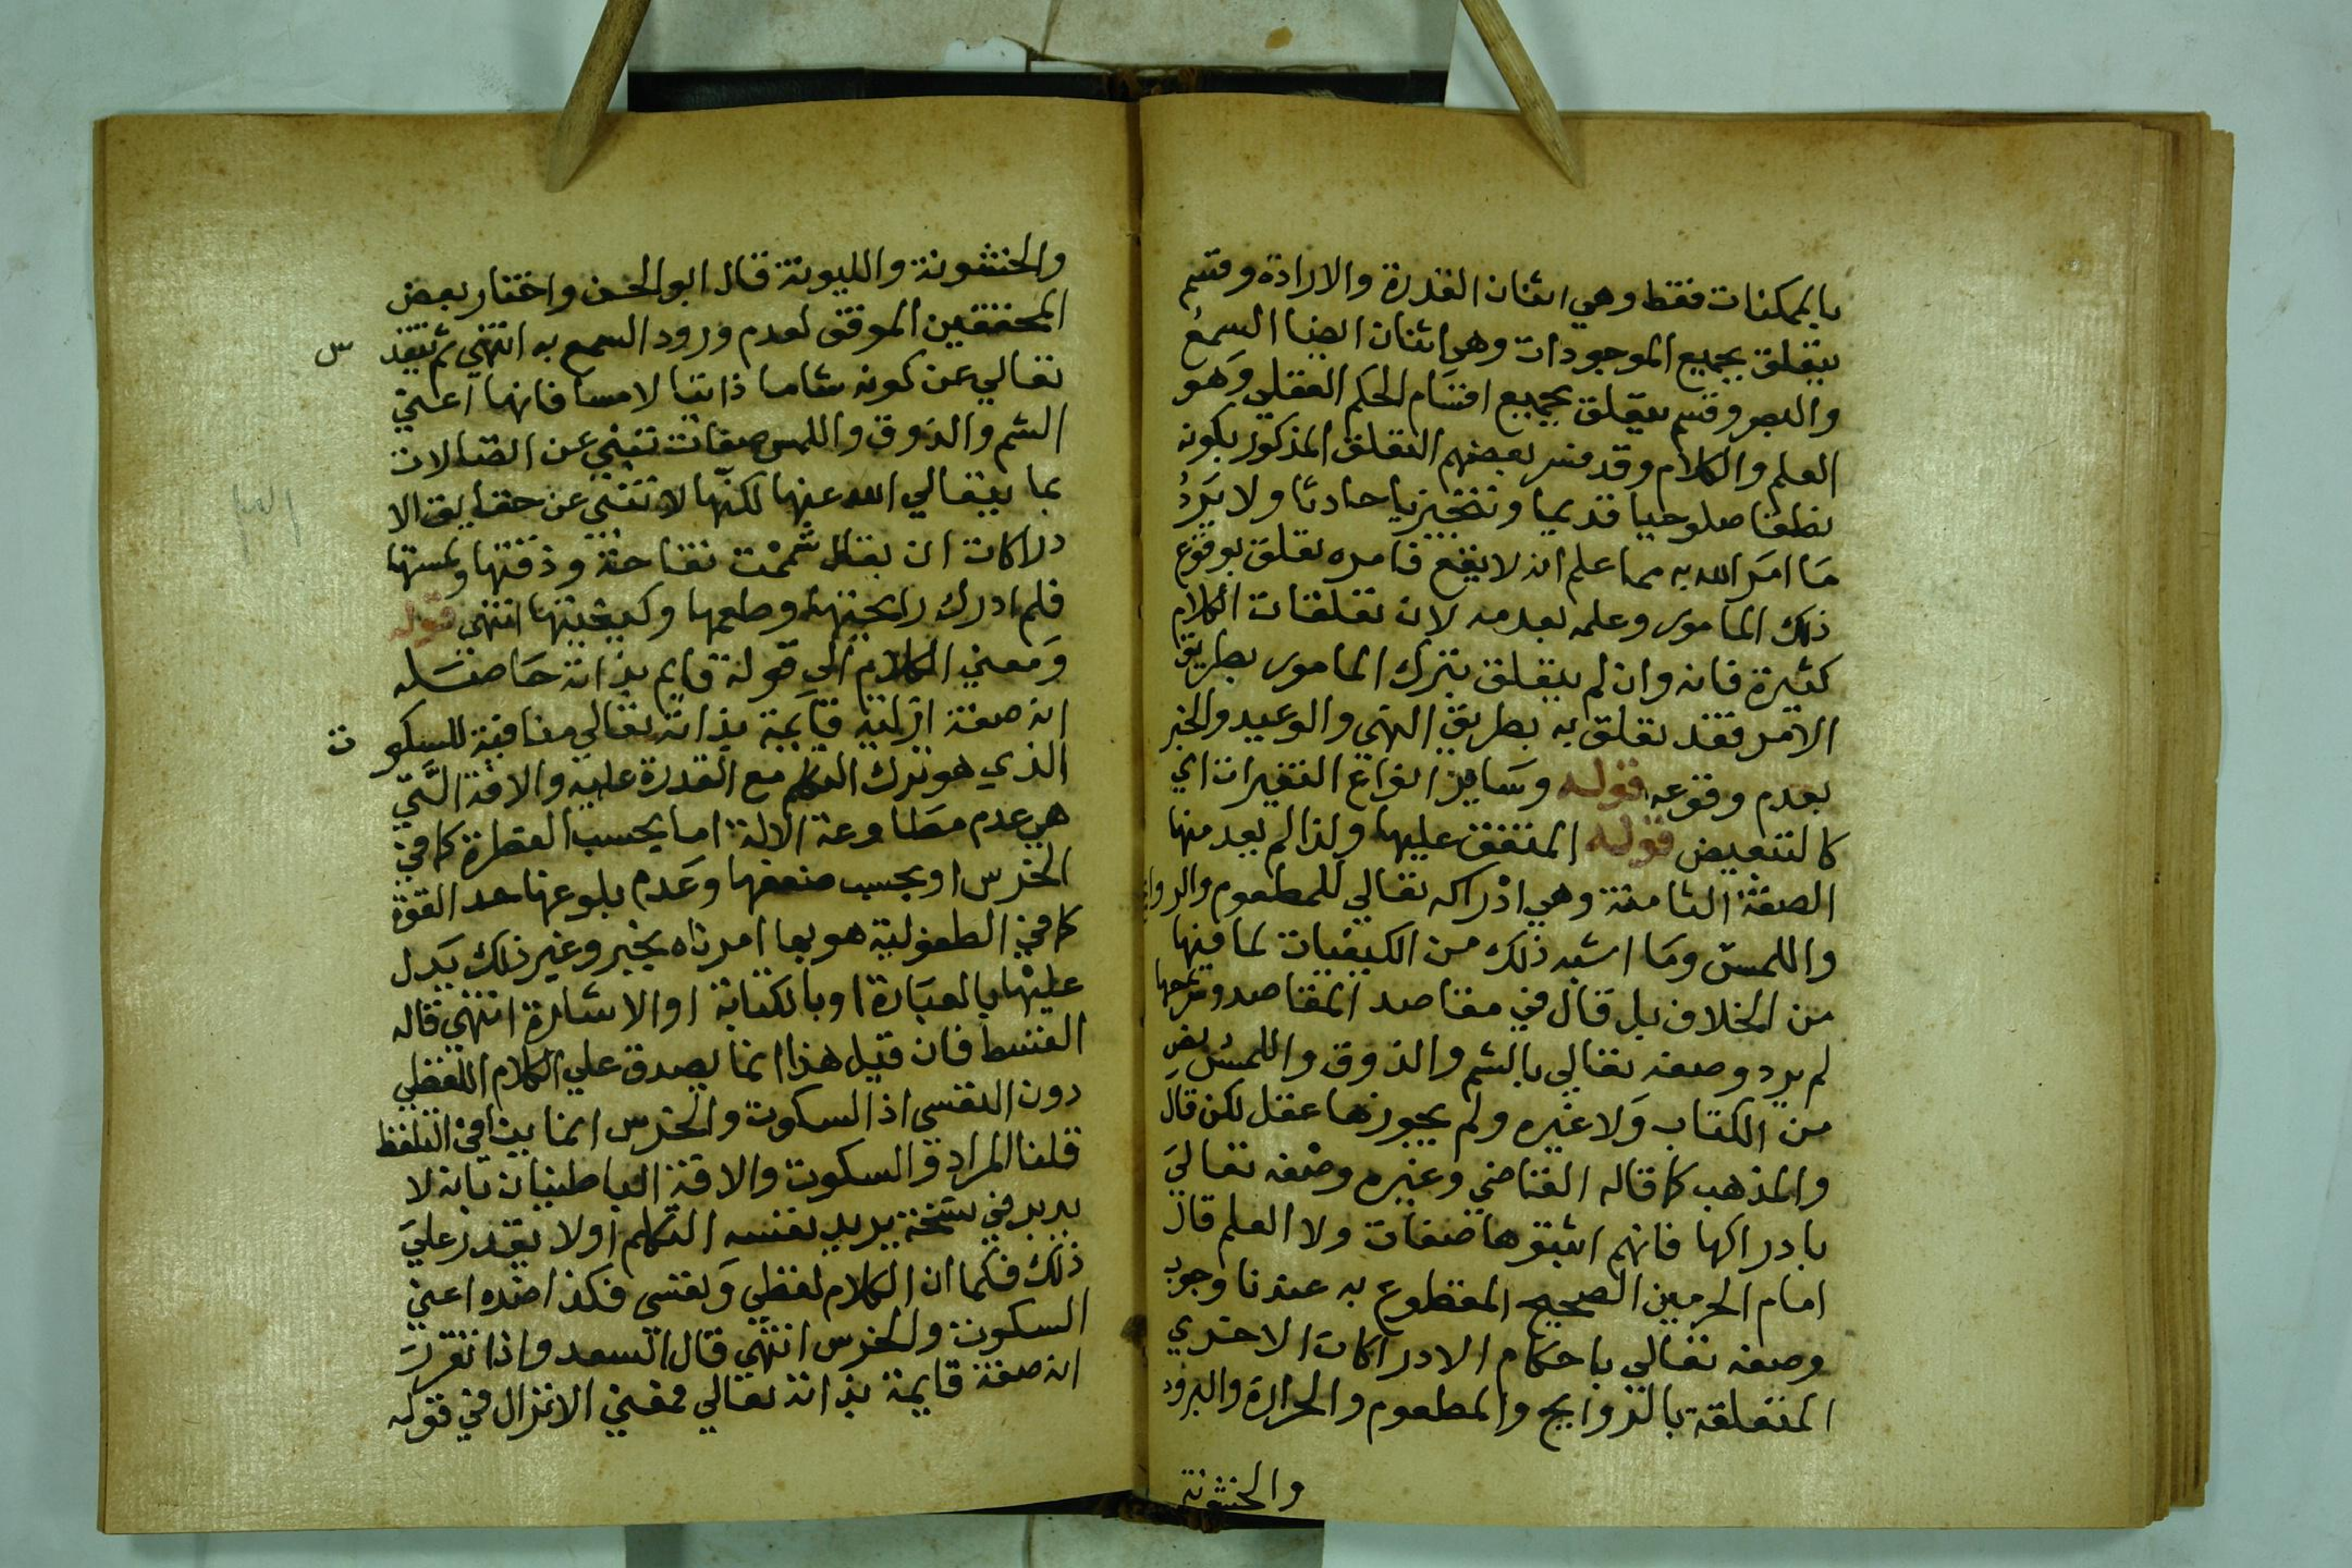 بالممكنات فقط وهي اثنان القدرة والارادة وقسم
يتعلق بجميع الموجودات وهي اثنان ايضا السمع
والبصر وقسم يتعلق بجميع اقسام الحكم العقلي وهو
العلم والكلام وقد فسر بعضهم التعلق المذكور بكونه
تعلقا صلوحيا قديما وتنجيزيا حادثا ولا يرد
ما امر الله به مما علم انه لا يقع فامره تعلق بوقوع
ذلك المامور وعلمه بعدمه لان تعلقات الكلام
كثيرة فانه وان لم يتعلق بترك المامور بطريق
الامر فقد تعلق به بطريق النهي والوعيد والخبر
بعدم وقوعه قوله وساير انواع التغيرات اي
كالتبعيض قوله المتفق عليها ولذا لم يعد منها
الصفة الثامنة وهي ادراكه تعالي للمطعوم والروائح
واللمس وما اشبه ذلك من الكيفيات لما فيها
من الخلاف بل قال في مقاصد المقاصد وشرحها
لم يرد وصفه تعالي بالشم والذوق واللمس نص
من الكتاب ولا غيره ولم يجوزها عقل لكن قال
والمذهب كما قاله القاضي وغيره وصفه تعالي
بادراكها فانهم اثبتوها صفات ولا العلم قال
امام الحرمين الصحيح المقطوع به عندنا وجوب
وصفه تعالي باحكام الادراكات الاخري
المتعلقة بالروايح والمطعوم والحرارة والبرود
والخشونة
والخشونة والليونة قال ابو الحسن واختار بعض
المحققين الموقف لعدم ورود السمع به انتهي ثم تقد س
تعالي عن كونه شاما ذائقا لامسا فانها اعني
الشم والذوق واللمس صفات تنبئ عن اتصالات
بما يتعالي الله عنها لكنها لا تنبئ عن حقايق الا
دراكات ان يقال شممت تفاحة وذقتها ولمستها
فلم ادرك رايحتها وطعمها وكيفيتها انتهي قوله
ومعني الكلام الي قوله قايم بذاته حاصله
انه صفة ازلية قايمة بذاته تعالي منافية للسكو ت
الذي هو ترك التكلم مع القدرة عليه والافة التي
هي عدم مطاوعة الالة اما بحسب الفطرة كما في
الخرس او بحسب ضعفها وعدم بلوغها حد القوة
كما في الطفولية هو بها امر ناه مخبر وغير ذلك يدل
عليها بالعبارة او بالكتابة او الاشارة انتهي قاله
القسط فان قيل هذا انما يصدق علي الكلام اللفظي
دون النفسي اذ السكوت والخرس انما ينافي التلفظ
قلنا المراد و السكوت والافة الباطنيان بانه لا
يريد في نسخة يريد بنفسه التكلم او لا يقدر علي
ذلك فكما ان الكلام لفظي ونفسي فكذا ضده اعني
السكوت والخرس انتهي قال السعد واذا تقررت
انه صفة قايمة بذاته تعالي فمعني الانزال في قوله